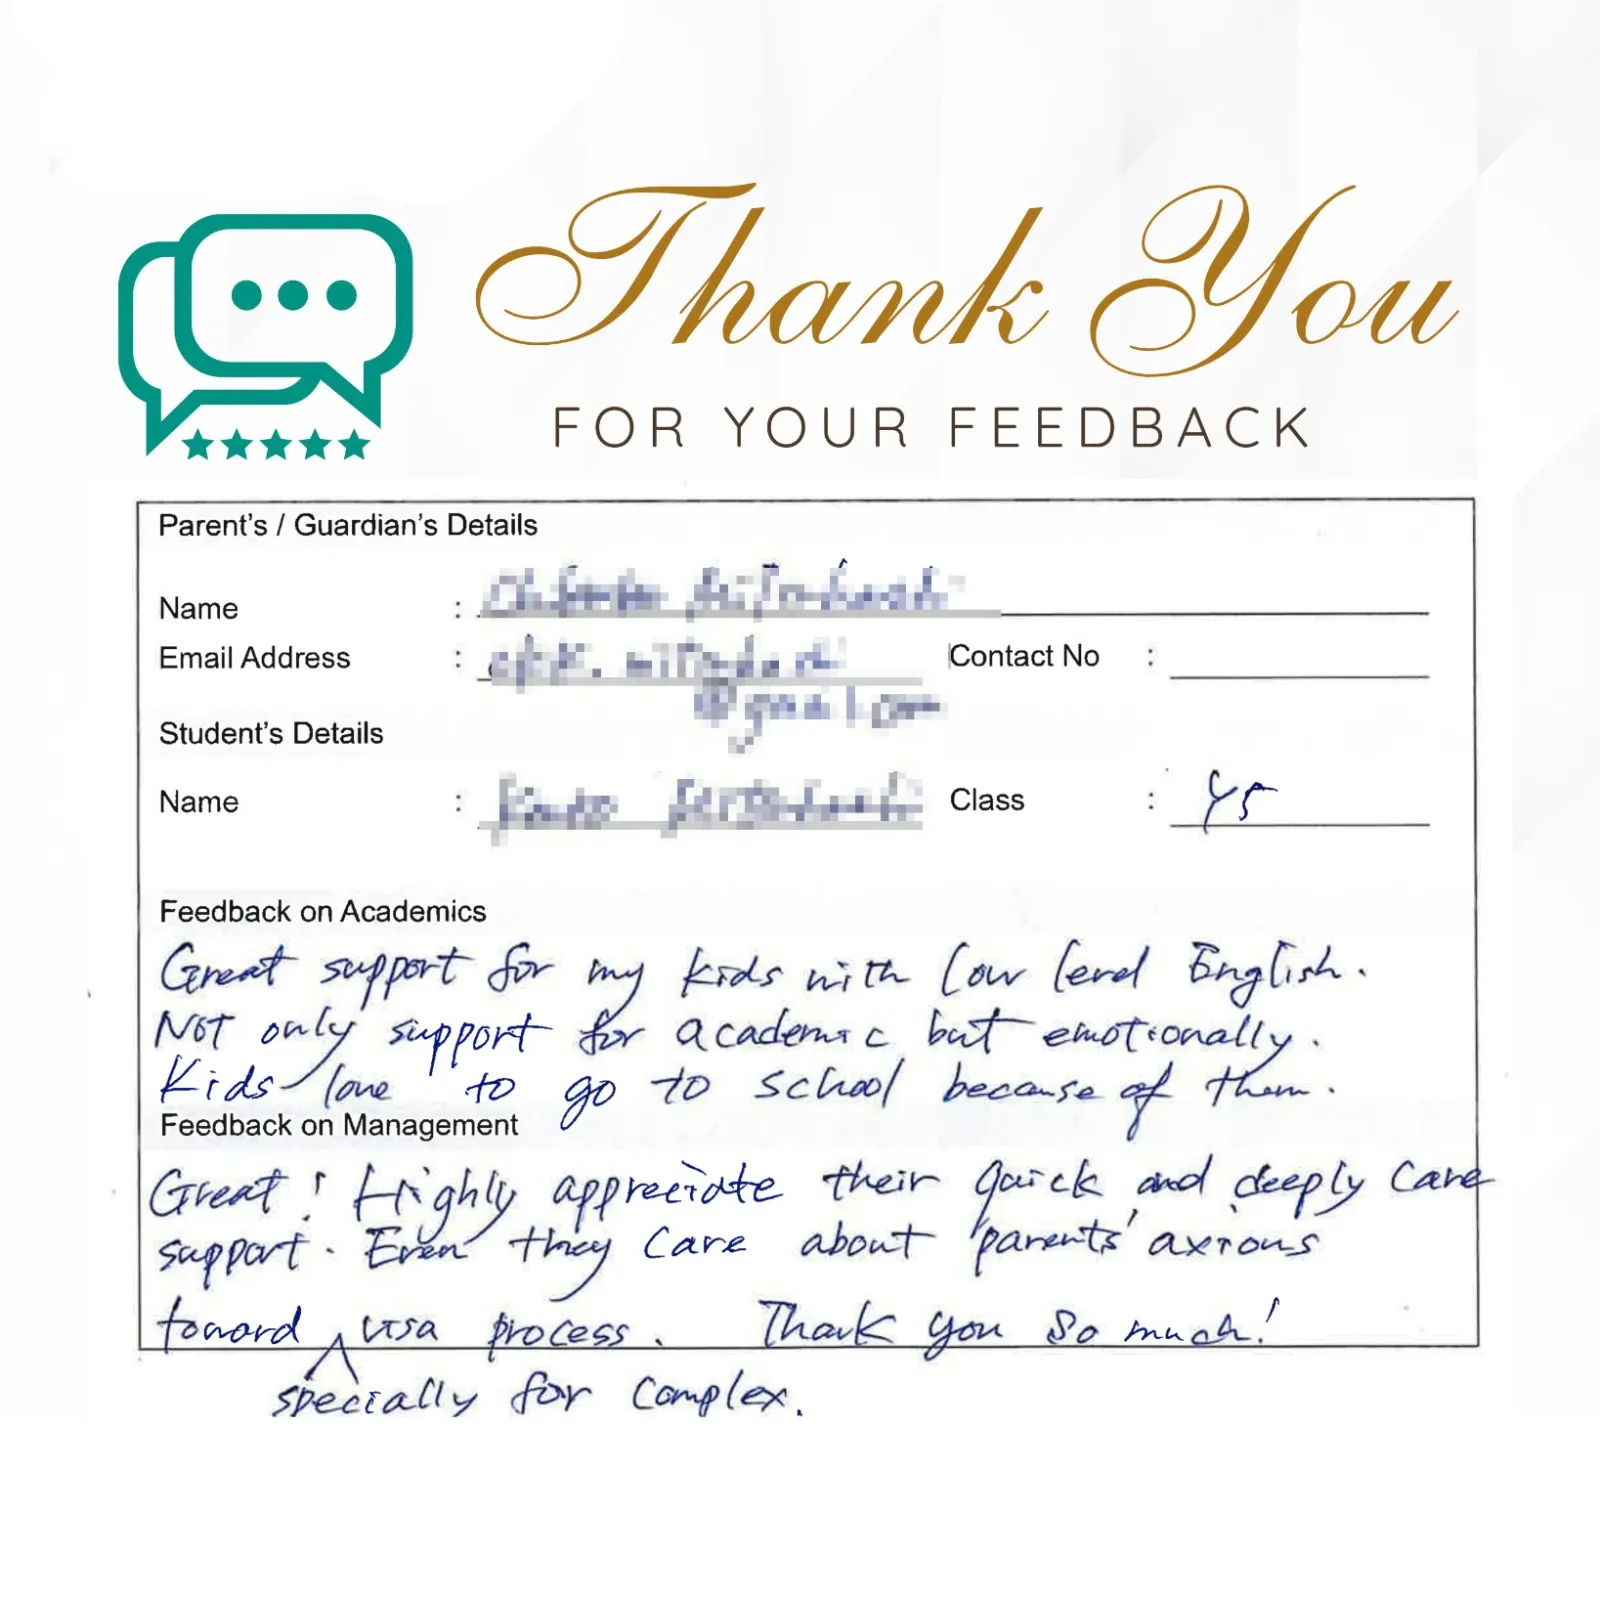 Thank You
FOR YOUR FEEDBACK
Parent's / Guardian's Details
Name :
Email Address : Contact No :
Student's Details
Name : Class : Y5
Feedback on Academics
Great support for my kids with low level English.
Not only support for academic but emotionally.
Kids love to go to school because of them.
Feedback on Management
Great! Highly appreciate their quick and deeply care
support. Even they care about parents' axious
toward visa process. Thank you so much!
specially for complex.